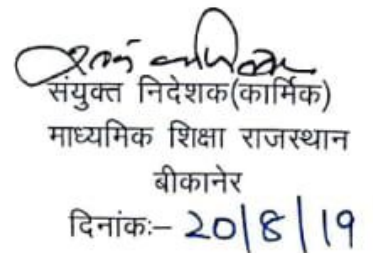 संयुक्त निदेशक(कार्मिक)
माध्यमिक शिक्षा राजस्थान
बीकानेर
दिनांकः– 20/8/19